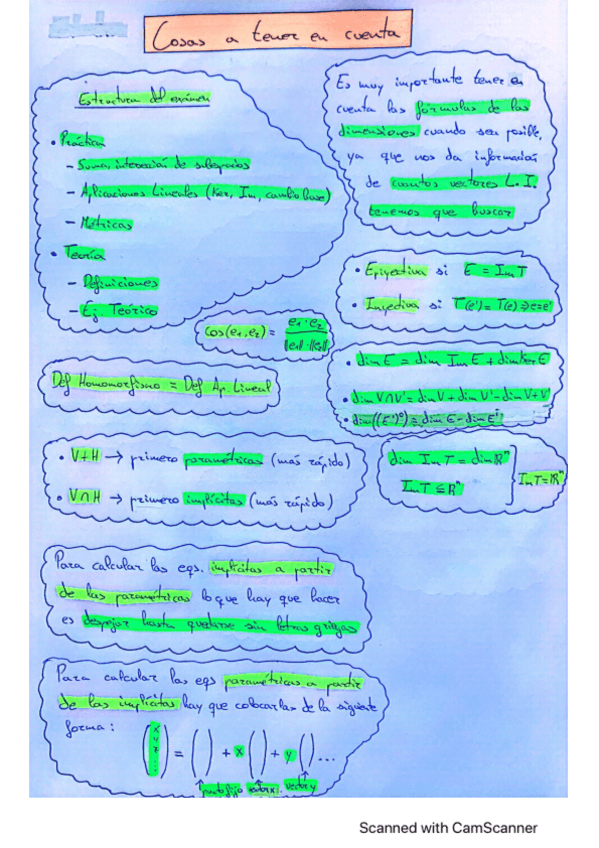 Cosas a tener en cuenta
Estructura del exámen
• Práctica
- Suma, intersección de subespacios
- Aplicaciones Lineales (Ker, Im, cambio base)
- Métricas
• Teoría
- Definiciones
- Ej. Teórico
Es muy importante tener en
cuenta las fórmulas de las
dimensiones cuando sea posible,
ya que nos da información
de cuantos vectores L.I.
tenemos que buscar
• Epiyectiva si E = Im T
• Inyectiva si T(e') = T(e) ⇒ e=e'
cos(e₁,e₂) = e₁·e₂ / ||e₁||·||e₂||
• dim E = dim Im E + dim Ker E
• dim V∩V' = dim V + dim V' - dim V+V'
• dim((E')⁰) = dim E - dim E'
Def Homomorfismo = Def Ap. Lineal
• V+H → primero paramétricas (más rápido)
• V∩H → primero implícitas (más rápido)
dim Im T = dim ℝⁿ
Im T ⊆ ℝⁿ
Im T = ℝⁿ
Para calcular las eqs. implícitas a partir
de las paramétricas lo que hay que hacer
es despejar hasta quedarse sin letras griegas
Para calcular las eqs paramétricas a partir
de las implícitas hay que colocarlas de la siguiente
forma:
(x y z ⋮) = ( ) + x ( ) + y ( ) ...
punto fijo vector x vector y
Scanned with CamScanner